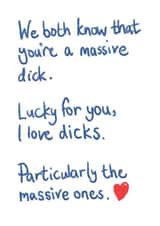 We both know that
you're a massive
dick.
Lucky for you,
I love dicks.
Particularly the
massive ones.